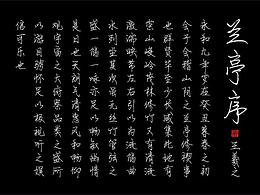 兰亭序
王羲之
永和九年岁在癸丑暮春之初
会于会稽山阴之兰亭修禊事
也群贤毕至少长咸集此地有
崇山峻岭茂林修竹又有清流
激湍映带左右引以为流觞曲
水列坐其次虽无丝竹管弦之
盛一觞一咏亦足以畅叙幽情
是日也天朗气清惠风和畅仰
观宇宙之大俯察品类之盛所
以游目骋怀足以极视听之娱
信可乐也